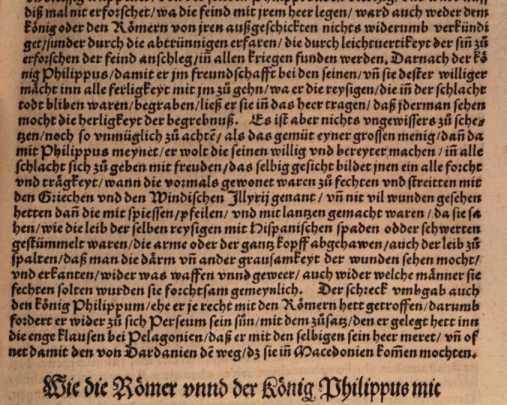 diß mal nit erforschet/wa die feind mit jrem heer legen/ward auch weder dem
könig oder den Römern von jren außgeschickten nichts widerumb verkündi
get/sunder durch die abtrünnigen erfaren/die durch leichtuertikeyt der sin̄ zů
erforschen der feind anschleg/in̄ allen kriegen funden werden. Darnach der kö
nig Philippus/damit er jm freundschafft bei den seinen/vn̄ sie dester williger
mächt inn alle ferligkeyt mit jm zů gehn/wa er die reysigen/die in̄ der schlacht
todt bliben waren/begraben/ließ er sie in̄ das heer tragen/daß jderman sehen
mocht die herligkeyt der begrebnuß. Es ist aber nichts vngewissers zů sche-
tzen/noch so vnmüglich zů achtē/als das gemüt eyner grossen menig/dan̄ da
mit Philippus meynet/er wolt die seinen willig vnd bereyter machen/in̄ alle
schlacht sich zů geben mit freuden/das selbig gesicht bildet jnen ein alle forcht
vnd trägkeyt/wann die vormals gewonet waren zů fechten vnd streitten mit
den Griechen vnd den Windischen Illyrij genant/vn̄ nit vil wunden gesehen
hetten dan̄ die mit spiessen/pfeilen/vnd mit lantzen gemacht waren/da sie sa
hen/wie die leib der selben reysigen mit Hispanischen spaden odder schwerten
gestümmelt waren/die arme oder der gantz kopff abgehawen/auch der leib zů
spalten/daß man die därm vn̄ ander grausamkeyt der wunden sehen mocht/
vnd erkanten/wider was waffen vnnd geweer/auch wider welche männer sie
fechten solten wurden sie forchtsam gemeynlich. Der schreck vmbgab auch
den könig Philippum/ehe er je recht mit den Römern hett getroffen/darumb
fordert er wider zů sich Perseum sein sün/mit dem zůsatz/den er gelegt hett inn
die enge klausen bei Pelagonien/daß er mit den selbigen sein heer meret/vn̄ of
net damit den von Dardanien dē weg/dz sie in̄ Macedonien kom̄en mochten.
Wie die Römer vnnd der König Philippus mit